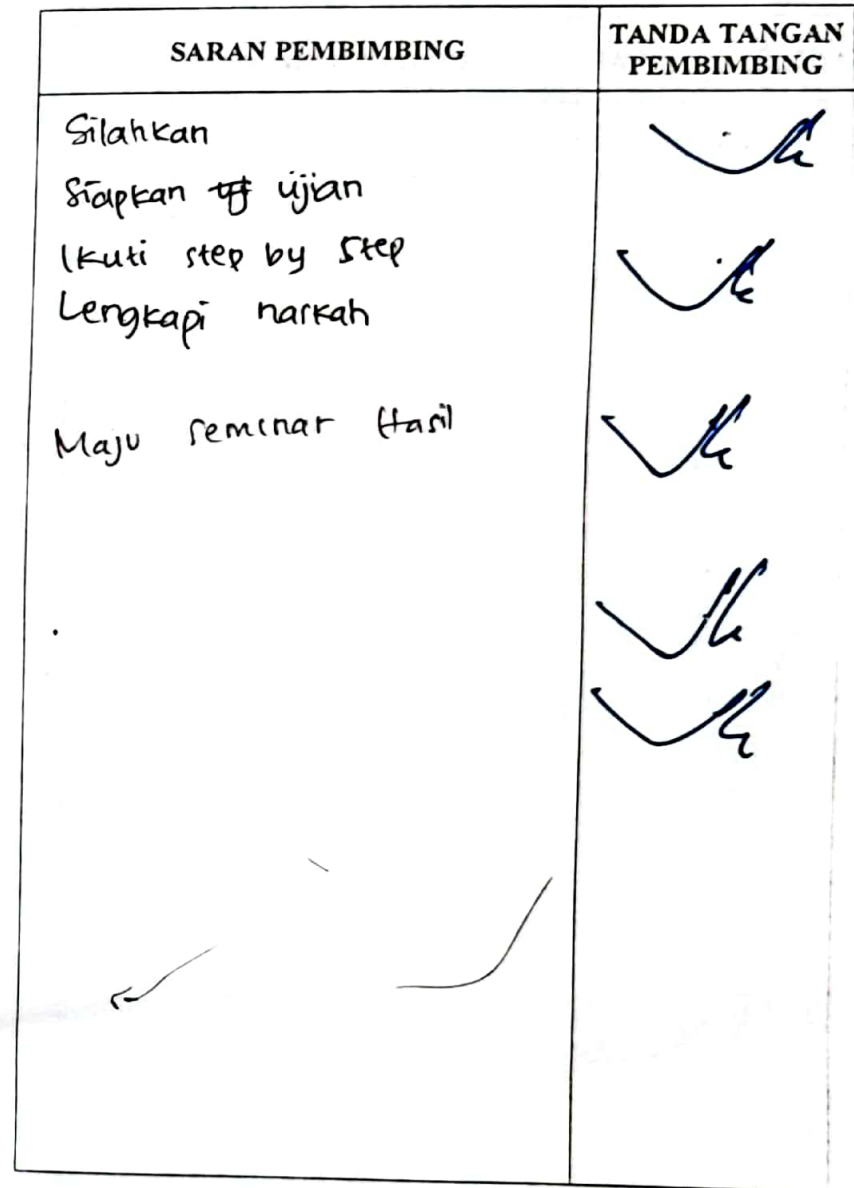 SARAN PEMBIMBING
TANDA TANGAN
PEMBIMBING
Silahkan
Siapkan ujian
Ikuti step by step
Lengkapi naskah
Maju seminar Hasil